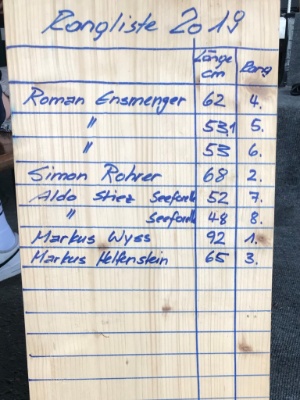 Rangliste 2019
Länge cm Rang
Roman Ensmenger 62 4.
" 531 5.
" 53 6.
Simon Rohrer 68 2.
Aldo 52 7.
" 48 8.
Markus Wyss 92 1.
Markus Helfenstein 65 3.